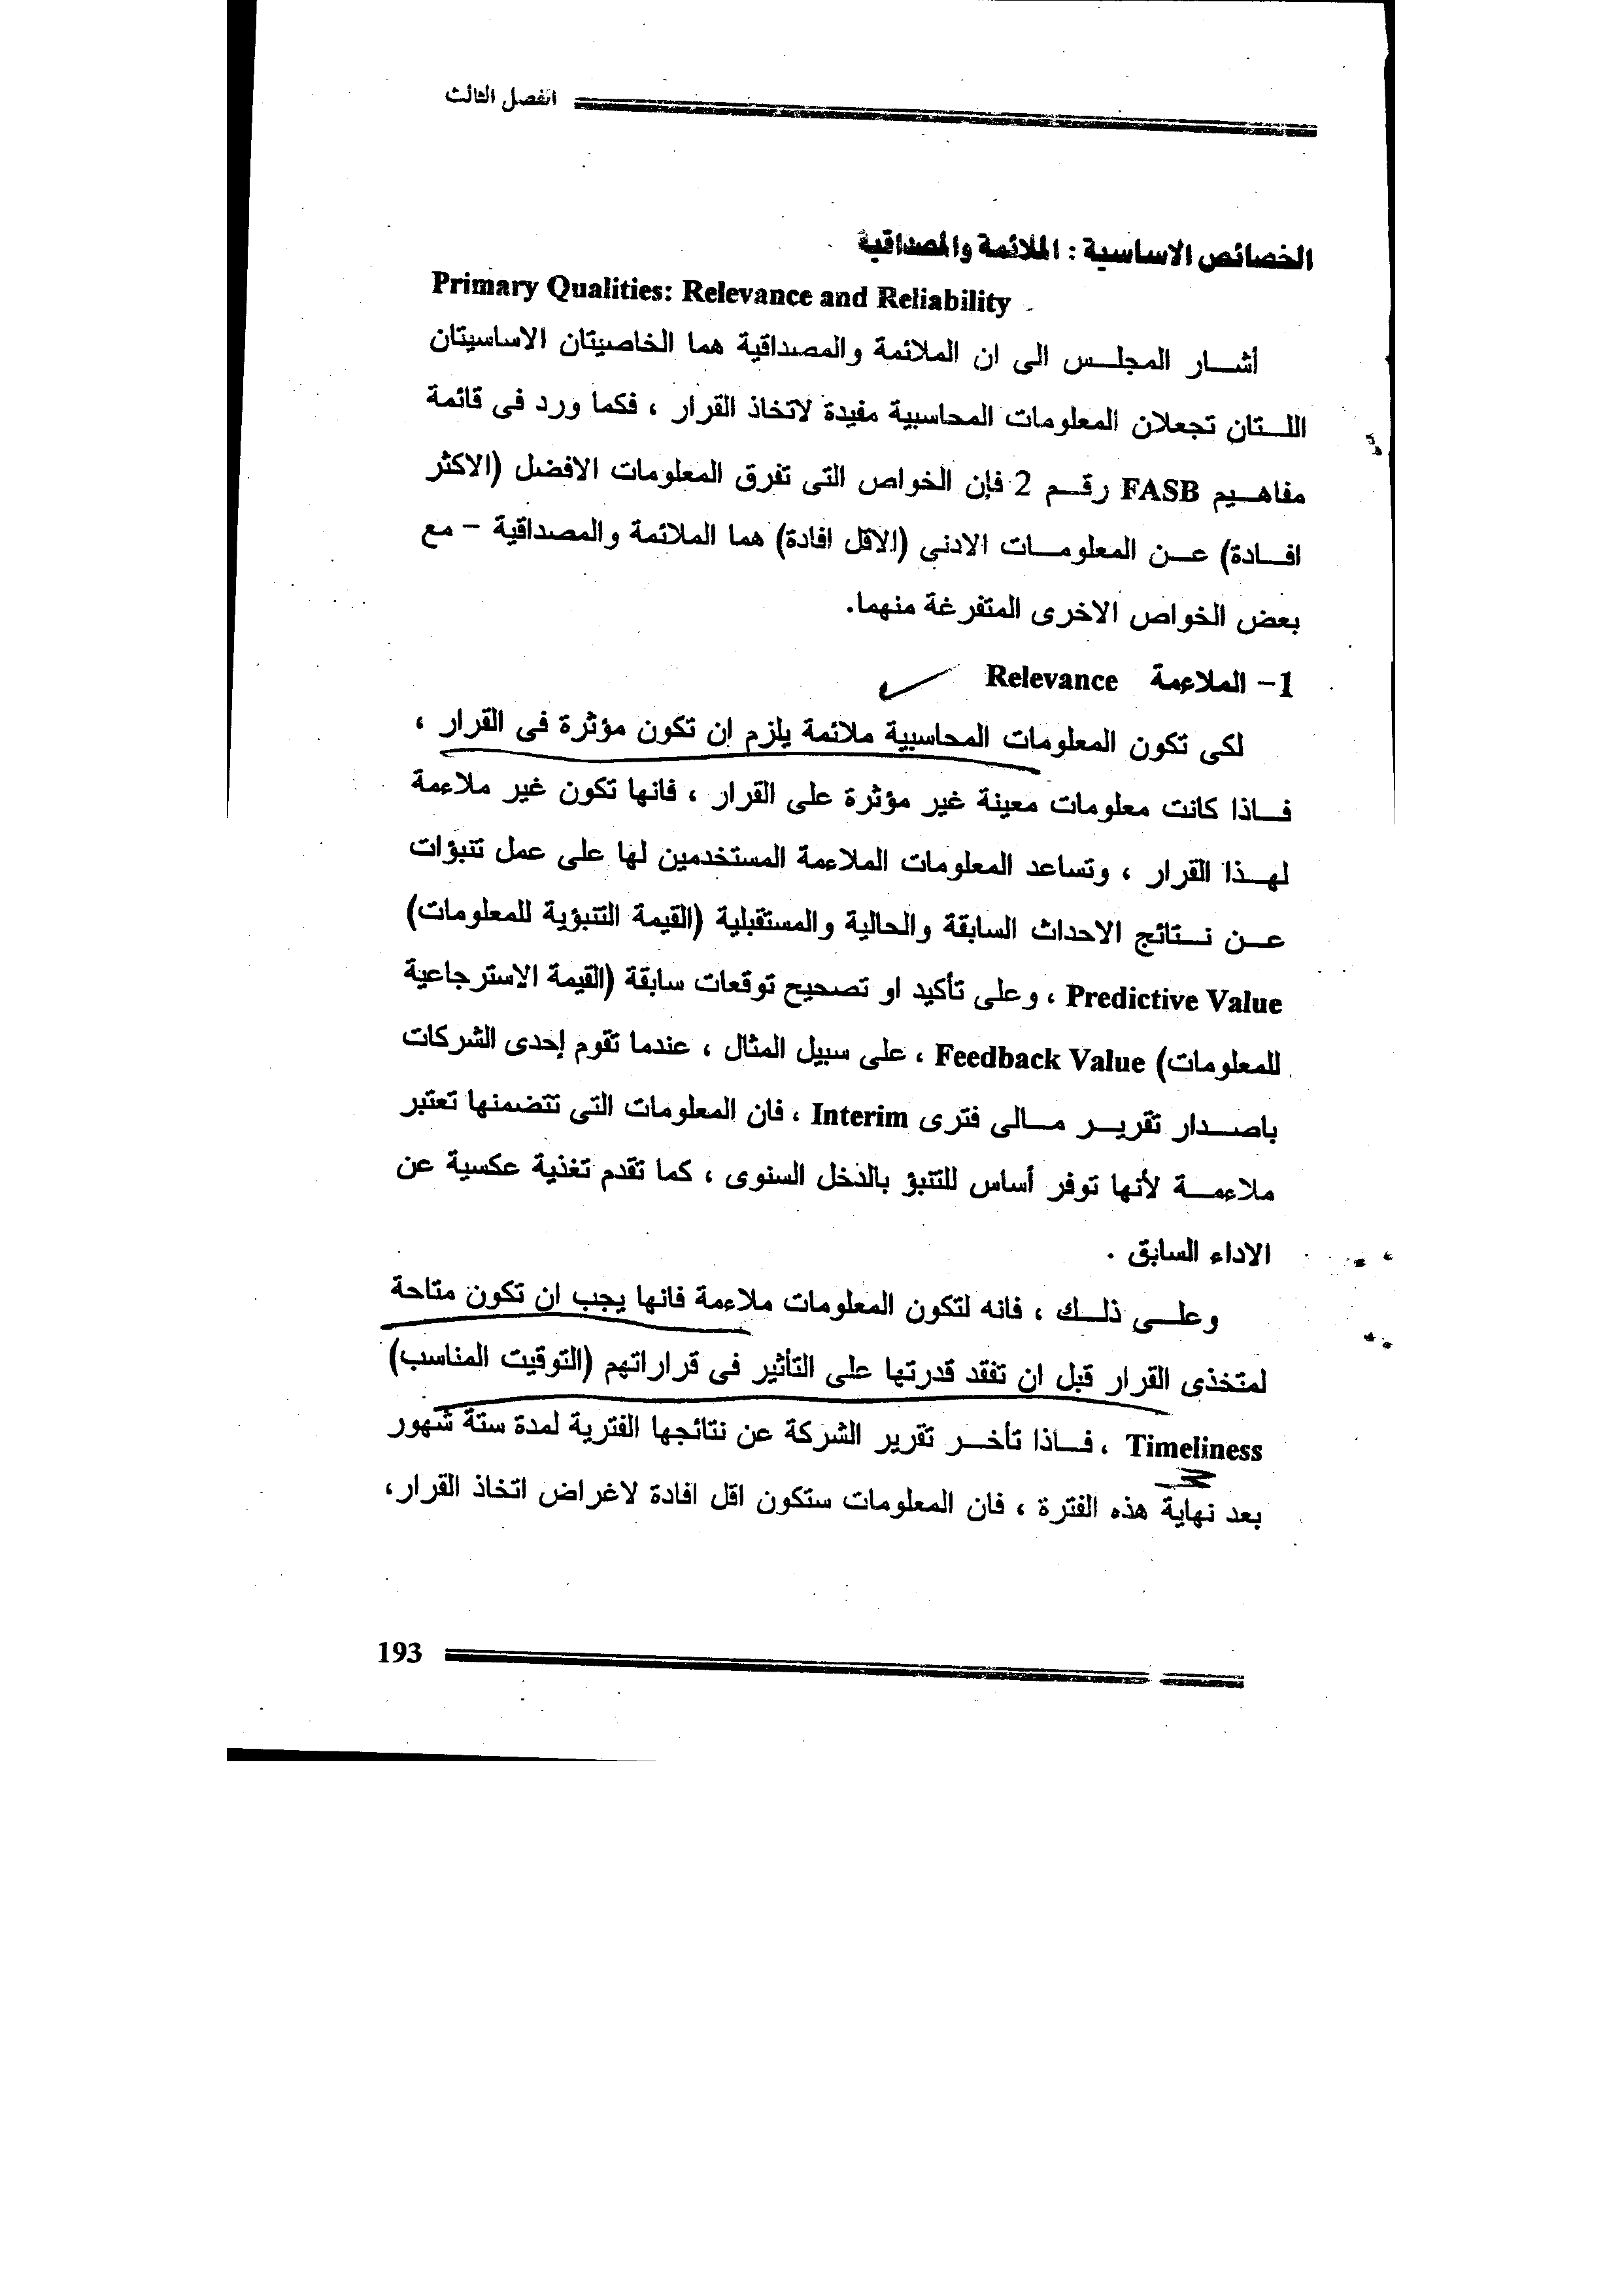 الفصل الثالث
الخصائص الاساسية : الملائمة والمصداقية
Primary Qualities: Relevance and Reliability
أشار المجلس الى ان الملائمة والمصداقية هما الخاصيتان الاساسيتان
اللتان تجعلان المعلومات المحاسبية مفيدة لاتخاذ القرار ، فكما ورد فى قائمة
مفاهيم FASB رقم 2 فإن الخواص التى تفرق المعلومات الافضل (الاكثر
افادة) عن المعلومات الادنى (الاقل افادة) هما الملائمة والمصداقية - مع
بعض الخواص الاخرى المتفرغة منهما.
1- الملاءمة Relevance
لكى تكون المعلومات المحاسبية ملائمة يلزم ان تكون مؤثرة فى القرار ،
فاذا كانت معلومات معينة غير مؤثرة على القرار ، فانها تكون غير ملاءمة
لهذا القرار ، وتساعد المعلومات الملاءمة المستخدمين لها على عمل تنبؤات
عن نتائج الاحداث السابقة والحالية والمستقبلية (القيمة التنبؤية للمعلومات)
Predictive Value ، وعلى تأكيد او تصحيح توقعات سابقة (القيمة الاسترجاعية
للمعلومات) Feedback Value ، على سبيل المثال ، عندما تقوم إحدى الشركات
باصدار تقرير مالى فترى Interim ، فان المعلومات التى تتضمنها تعتبر
ملاءمة لأنها توفر أساس للتنبؤ بالدخل السنوى ، كما تقدم تغذية عكسية عن
الاداء السابق .
وعلى ذلك ، فانه لتكون المعلومات ملاءمة فانها يجب ان تكون متاحة
لمتخذى القرار قبل ان تفقد قدرتها على التأثير فى قراراتهم (التوقيت المناسب)
Timeliness ، فاذا تأخر تقرير الشركة عن نتائجها الفترية لمدة ستة شهور
بعد نهاية هذه الفترة ، فان المعلومات ستكون اقل افادة لاغراض اتخاذ القرار،
193